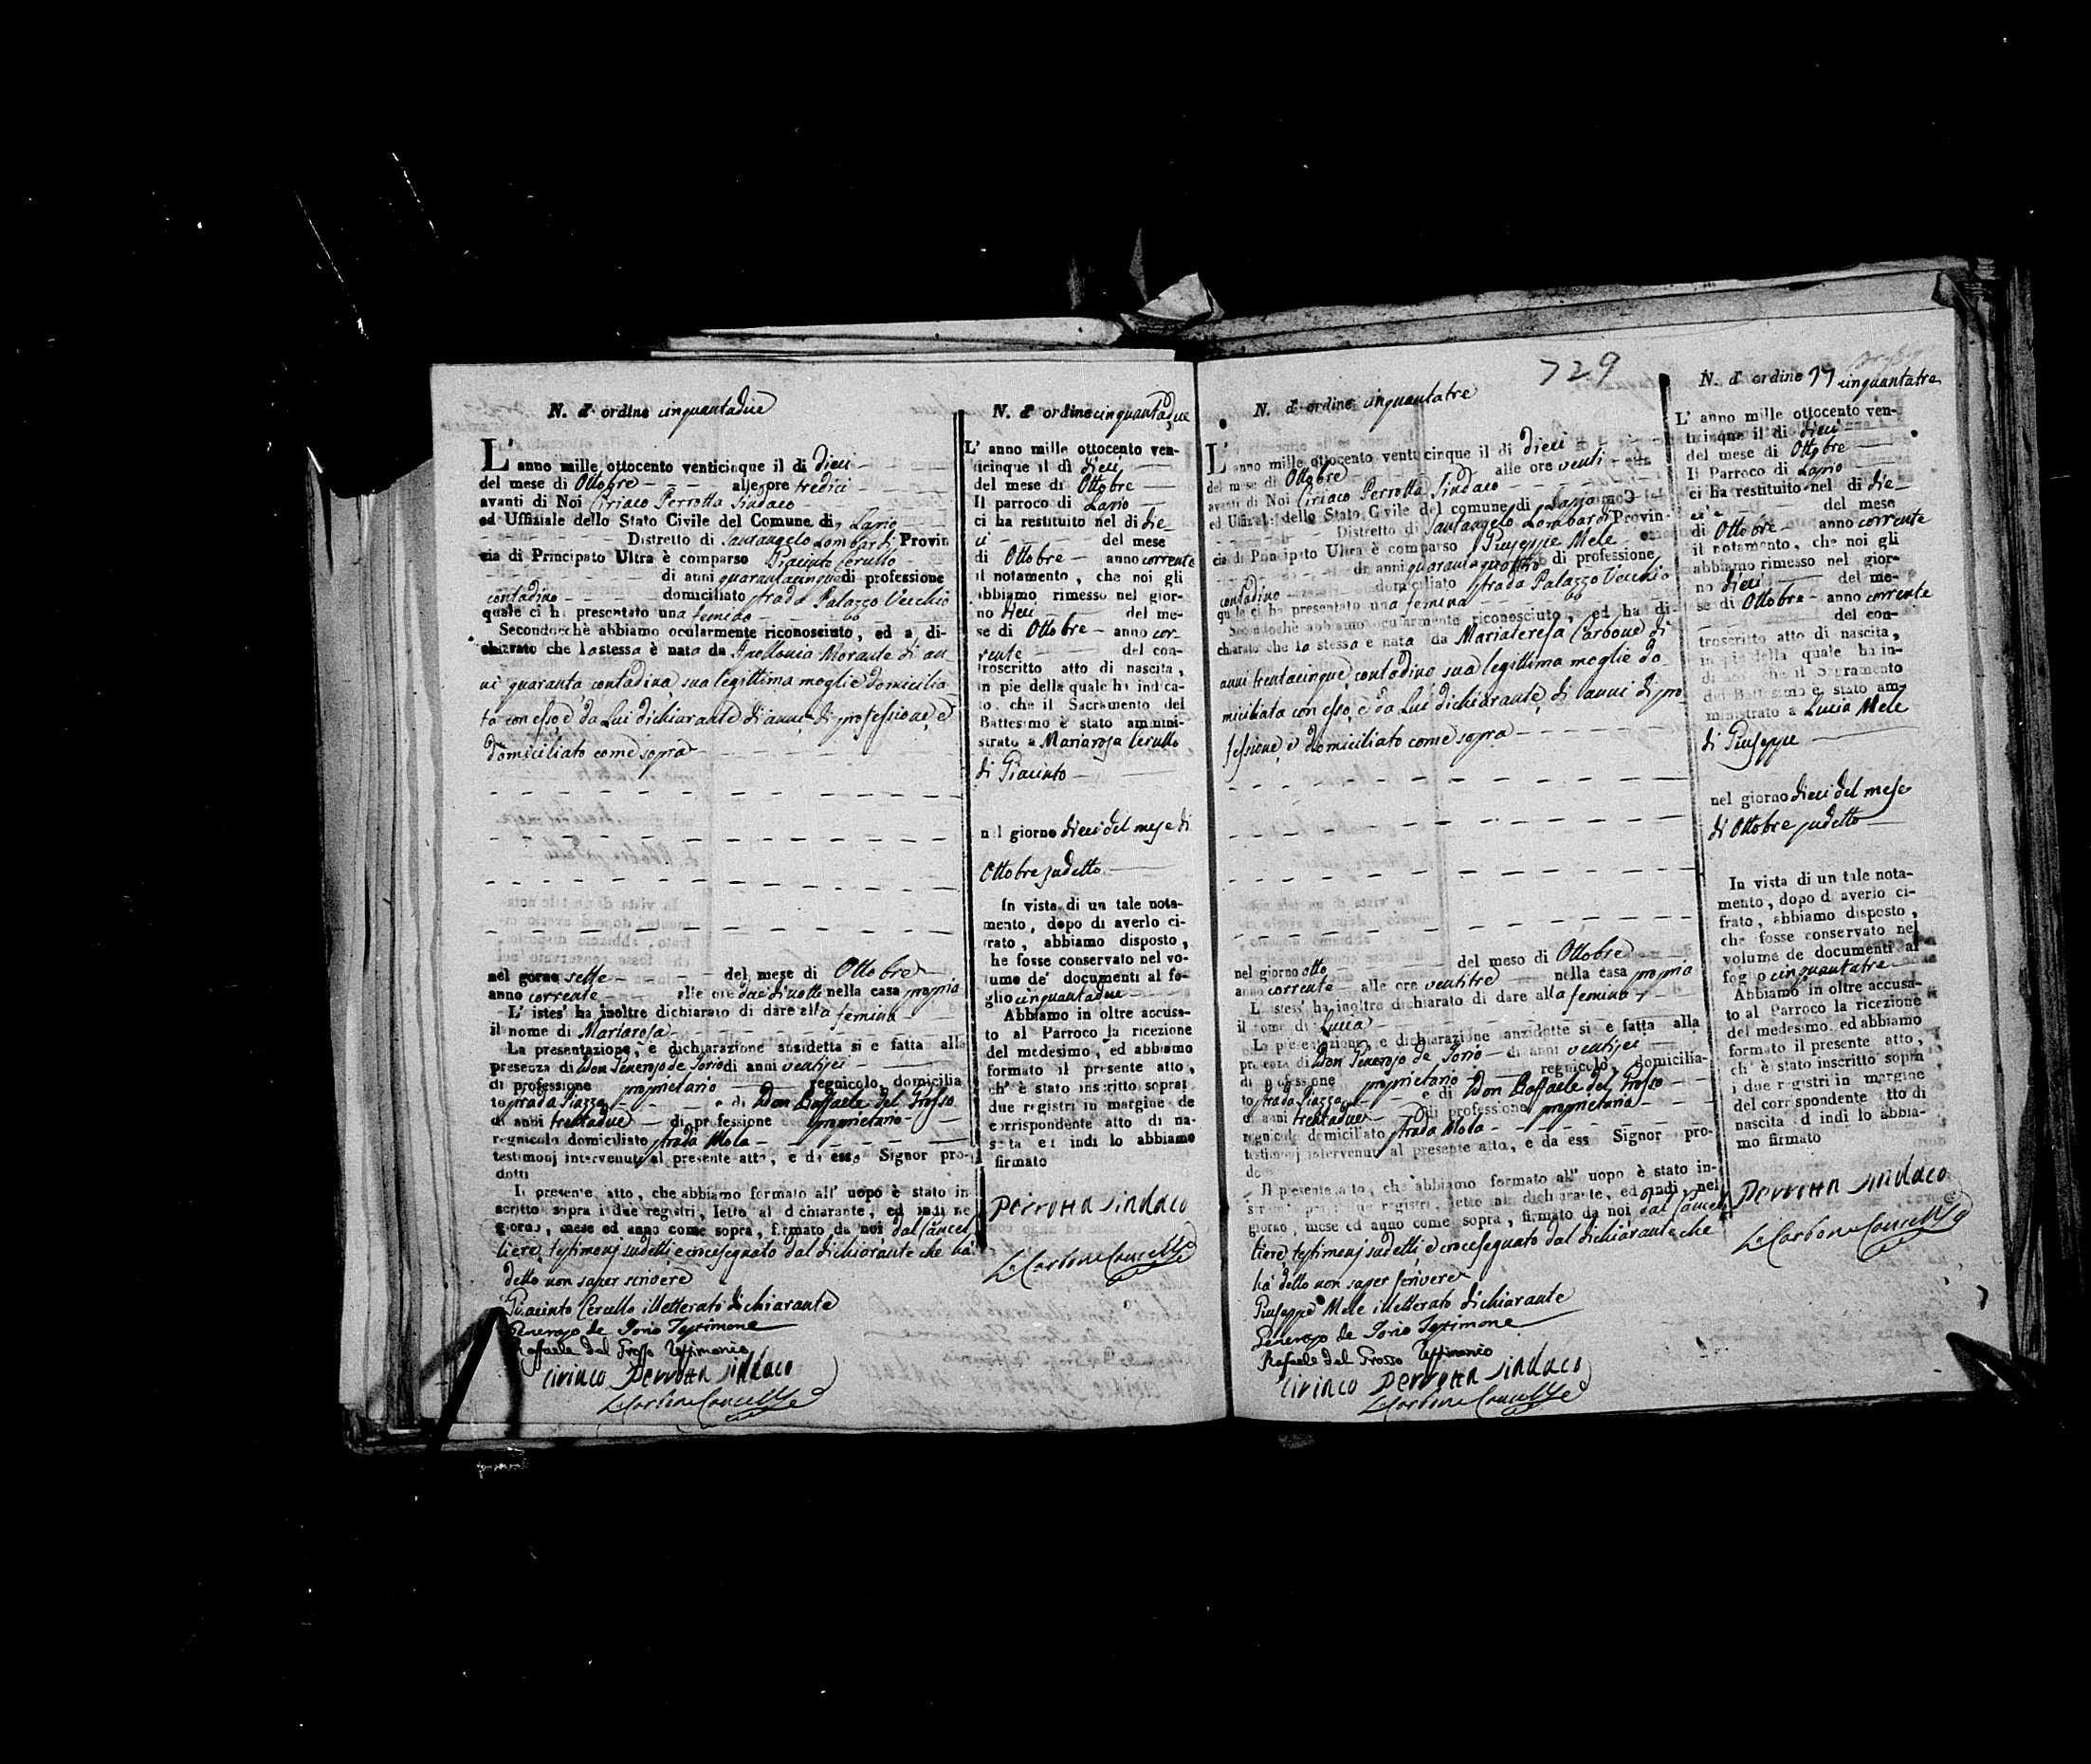 N. d' ordine cinquantadue
L' anno mille ottocento venticinque il di dieci
del mese di Ottobre alle ore tredici
avanti di Noi Ciriaco Perrotta Sindaco
ed Uffiziale dello Stato Civile del Comune di Lapio
Distretto di Santangelo Lombardi Provin
cia di Principato Ultra è comparso Giacinto Cerullo
di anni quarantacinque di professione
contadino domiciliato strada Palazzo Vecchio
quale ci ha presentato una femina
Secondocchè abbiamo ocularmente riconosciuto, ed a di-
chiarato che la stessa è nata da Apollonia Morante di an
ni quaranta contadina, sua legittima moglie domicilia
ta con esso, e da Lui dichiarante di anni di professione, e
domiciliato come sopra
nel gorno sette del mese di Ottobre
anno corrente alle ore due di notte nella casa propria
L' istes' ha inoltre dichiarato di dare alla femina
il nome di Mariarosa
La presentazione, e dichiarazione ansidetta si e fatta alla
presenza di Don Generoso de Iorio di anni ventisei
di professione proprietario regnicolo, domicilia
to strada Piazza e di Don Raffaele del Grosso
di anni trentadue di professione proprietario
regnicolo domiciliato strada Mola
testimonj intervenuti al presente atto, e da esso Signor pro-
dotti
Il presente atto, che abbiamo formato all' uopo è stato in
scritto sopra i due registri, letto al dichiarante, ed indi ne
giorno, mese ed anno come sopra, firmato da noi dal Cancel
liere, testimonj sudetti e crocesegnato dal dichiarante che ha
detto non saper scrivere
Giacinto Cerullo illetterato dichiarante
Generoso de Iorio Testimone
Raffaele del Grosso Testimonio
Ciriaco Perrotta Sindaco
Carbone Cancelle
N. d' ordine cinquantadue
L' anno mille ottocento ven-
ticinque il dì dieci
del mese di Ottobre
Il parroco di Lapio
ci ha restituito nel di die
ci del mese
di Ottobre anno corrente
il notamento, che noi gli
abbiamo rimesso nel gior-
no dieci del me-
se di Ottobre anno cor-
rente del con-
troscritto atto di nascita,
in pie della quale ha indica-
to che il Sacramento del
Battesimo è stato ammini-
strato a Mariarosa Cerullo
di Giacinto
nel giorno dieci del mese di
Ottobre sudetto
In vista di un tale nota-
mento, dopo di averlo ci-
frato, abbiamo disposto,
che fosse conservato nel vo-
lume de' documenti al fo-
glio cinquantadue
Abbiamo in oltre accusa-
to al Parroco la ricezione
del medesimo, ed abbiamo
formato il presente atto,
ch' è stato inscritto sopra i
due registri in margine de
corrispondente atto di na-
scita ed indi lo abbiamo
firmato
Perrotta Sindaco
Carbone Cancelle
729
N. d' ordine cinquantatre
L' anno mille ottocento venticinque il di dieci
del mese di Ottobre alle ore venti
avanti di Noi Ciriaco Perrotta Sindaco
ed Uffizial. dello Stato Civile del comune di Lapio
Distretto di Santangelo Lombardi Provin-
cia di Principato Ultra è comparso Giuseppe Mele
di anni quarantaquattro di professione
contadino domiciliato strada Palazzo Vecchio
quale ci ha presentato una femina
Secondochè abbiamo ocularmente riconosciuto, ed ha di
chiarato che la stessa è nata da Mariateresa Carbone di
anni trentacinque, contadina sua legittima moglie do
miciliata con esso, e da Lui dichiarante, di anni di pro
fessione, e domiciliato come sopra
nel giorno otto del mese di Ottobre
anno corrente alle ore ventitre nella casa propria
L' istess' ha inoltre dichiarato di dare alla femina
il nome di Lucia
La presentazione, e dichiarazione anzidette si e fatta alla
presenza di Don Generoso de Iorio di anni ventisei
di professione proprietario regnicolo, domicilia-
to strada Piazza e di Don Raffaele del Grosso
di anni trentadue di professione proprietario
regnicolo domiciliato strada Mola
testimonj intervenuti al presente atto, e da ess Signor pro-
dotti
Il presente atto, che abbiamo formato all' uopo è stato in-
scritto sopra i due registri, letto al dichiarante, ed indi nel
giorno, mese ed anno come sopra, firmato da noi dal Cancel
liere, testimonj sudetti, e crocesegnato dal dichiarante che
ha detto non saper scrivere
Giuseppe Mele illetterato dichiarante
Generoso de Iorio Testimone
Rafaele del Grosso Testimonio
Ciriaco Perrotta Sindaco
Carbone Cancelle
N. d' ordine cinquantatre
L' anno mille ottocento ven-
ticinque il di dieci
del mese di Ottobre
Il Parroco di Lapio
ci ha restituito nel di die
ci del mese
di Ottobre anno corrente
il notamento, che noi gli
abbiamo rimesso nel gior-
no dieci del me-
se di Ottobre anno corrente
del con-
troscritto atto di nascita,
in pie della quale ha in-
dicato che il Sagramento
del Battesimo è stato am-
ministrato a Lucia Mele
di Giuseppe
nel giorno dieci del mese
di Ottobre sudetto
In vista di un tale nota-
mento, dopo d averlo ci-
frato, abbiamo disposto,
che fosse conservato nel
volume de documenti al
foglio cinquantatre
Abbiamo in oltre accusa-
to al Parroco la ricezione
del medesimo, ed abbiamo
formato il presente atto,
ch' è stato inscritto sopra
i due registri in margine
del corrispondente atto di
nascita ed indi lo abbia-
mo firmato
Perrotta Sindaco
Carbone Cancelle